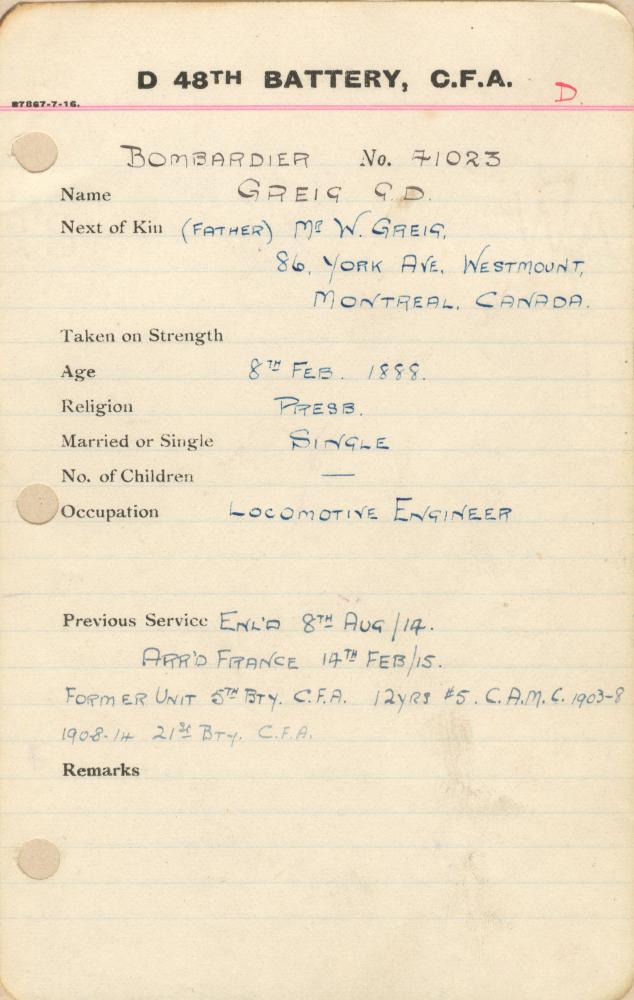 D 48TH BATTERY, C.F.A.
D.
87867-7-16.
BOMBARDIER No. 71023
Name GREIG G.D.
Next of Kin (FATHER) MR W. GREIG,
86, YORK AVE, WESTMOUNT,
MONTREAL, CANADA.
Taken on Strength
Age 8TH FEB. 1888.
Religion PRESB.
Married or Single SINGLE
No. of Children —
Occupation LOCOMOTIVE ENGINEER
Previous Service ENL'D 8TH AUG/14.
ARR'D FRANCE 14TH FEB/15.
FORMER UNIT 5TH BTY. C.F.A. 12YRS #5. C.A.M.C. 1903-8
1908-14 21ST BTY. C.F.A.
Remarks